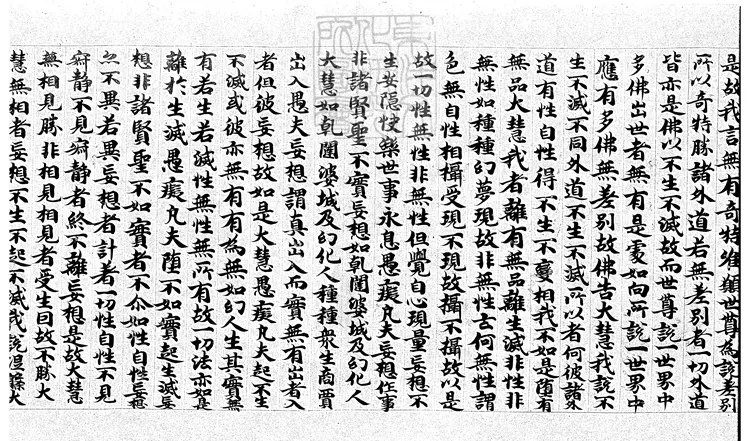 是故我言無有奇特唯願世尊為說差別
所以奇特勝諸外道若無差別者一切外道
皆亦是佛以不生不滅故而世尊說一世界中
多佛出世者無有是處如向所說一世界中
應有多佛無差別故佛告大慧我說不
生不滅不同外道不生不滅所以者何彼諸外
道有性自性得不生不變相我不如是墮有
無品大慧我者離有無品離生滅非性非
無性如種種幻夢現故非無性云何無性謂
色無自性相攝受現不現故攝不攝故以是
故一切性無性非無性但覺自心現量妄想不
生安隱快樂世事永息愚癡凡夫妄想作事
非諸賢聖不實妄想如乹闥婆城及幻化人
大慧如乹闥婆城及幻化人種種衆生商賈
出入愚夫妄想謂真出入而實無有出者入
者但彼妄想故如是大慧愚癡凡夫起不生
不滅或彼亦無有有為無如幻人生其實無
有若生若滅性無性無所有故一切法亦如是
離於生滅愚癡凡夫墮不如實起生滅妄
想非諸賢聖不如實者不尒如性自性妄想
亦不異若異妄想者計著一切性自性不見
寂静不見寂静者終不離妄想是故大慧
無相見勝非相見相見者受生因故不勝大
慧無相者妄想不生不起不滅我說涅槃大